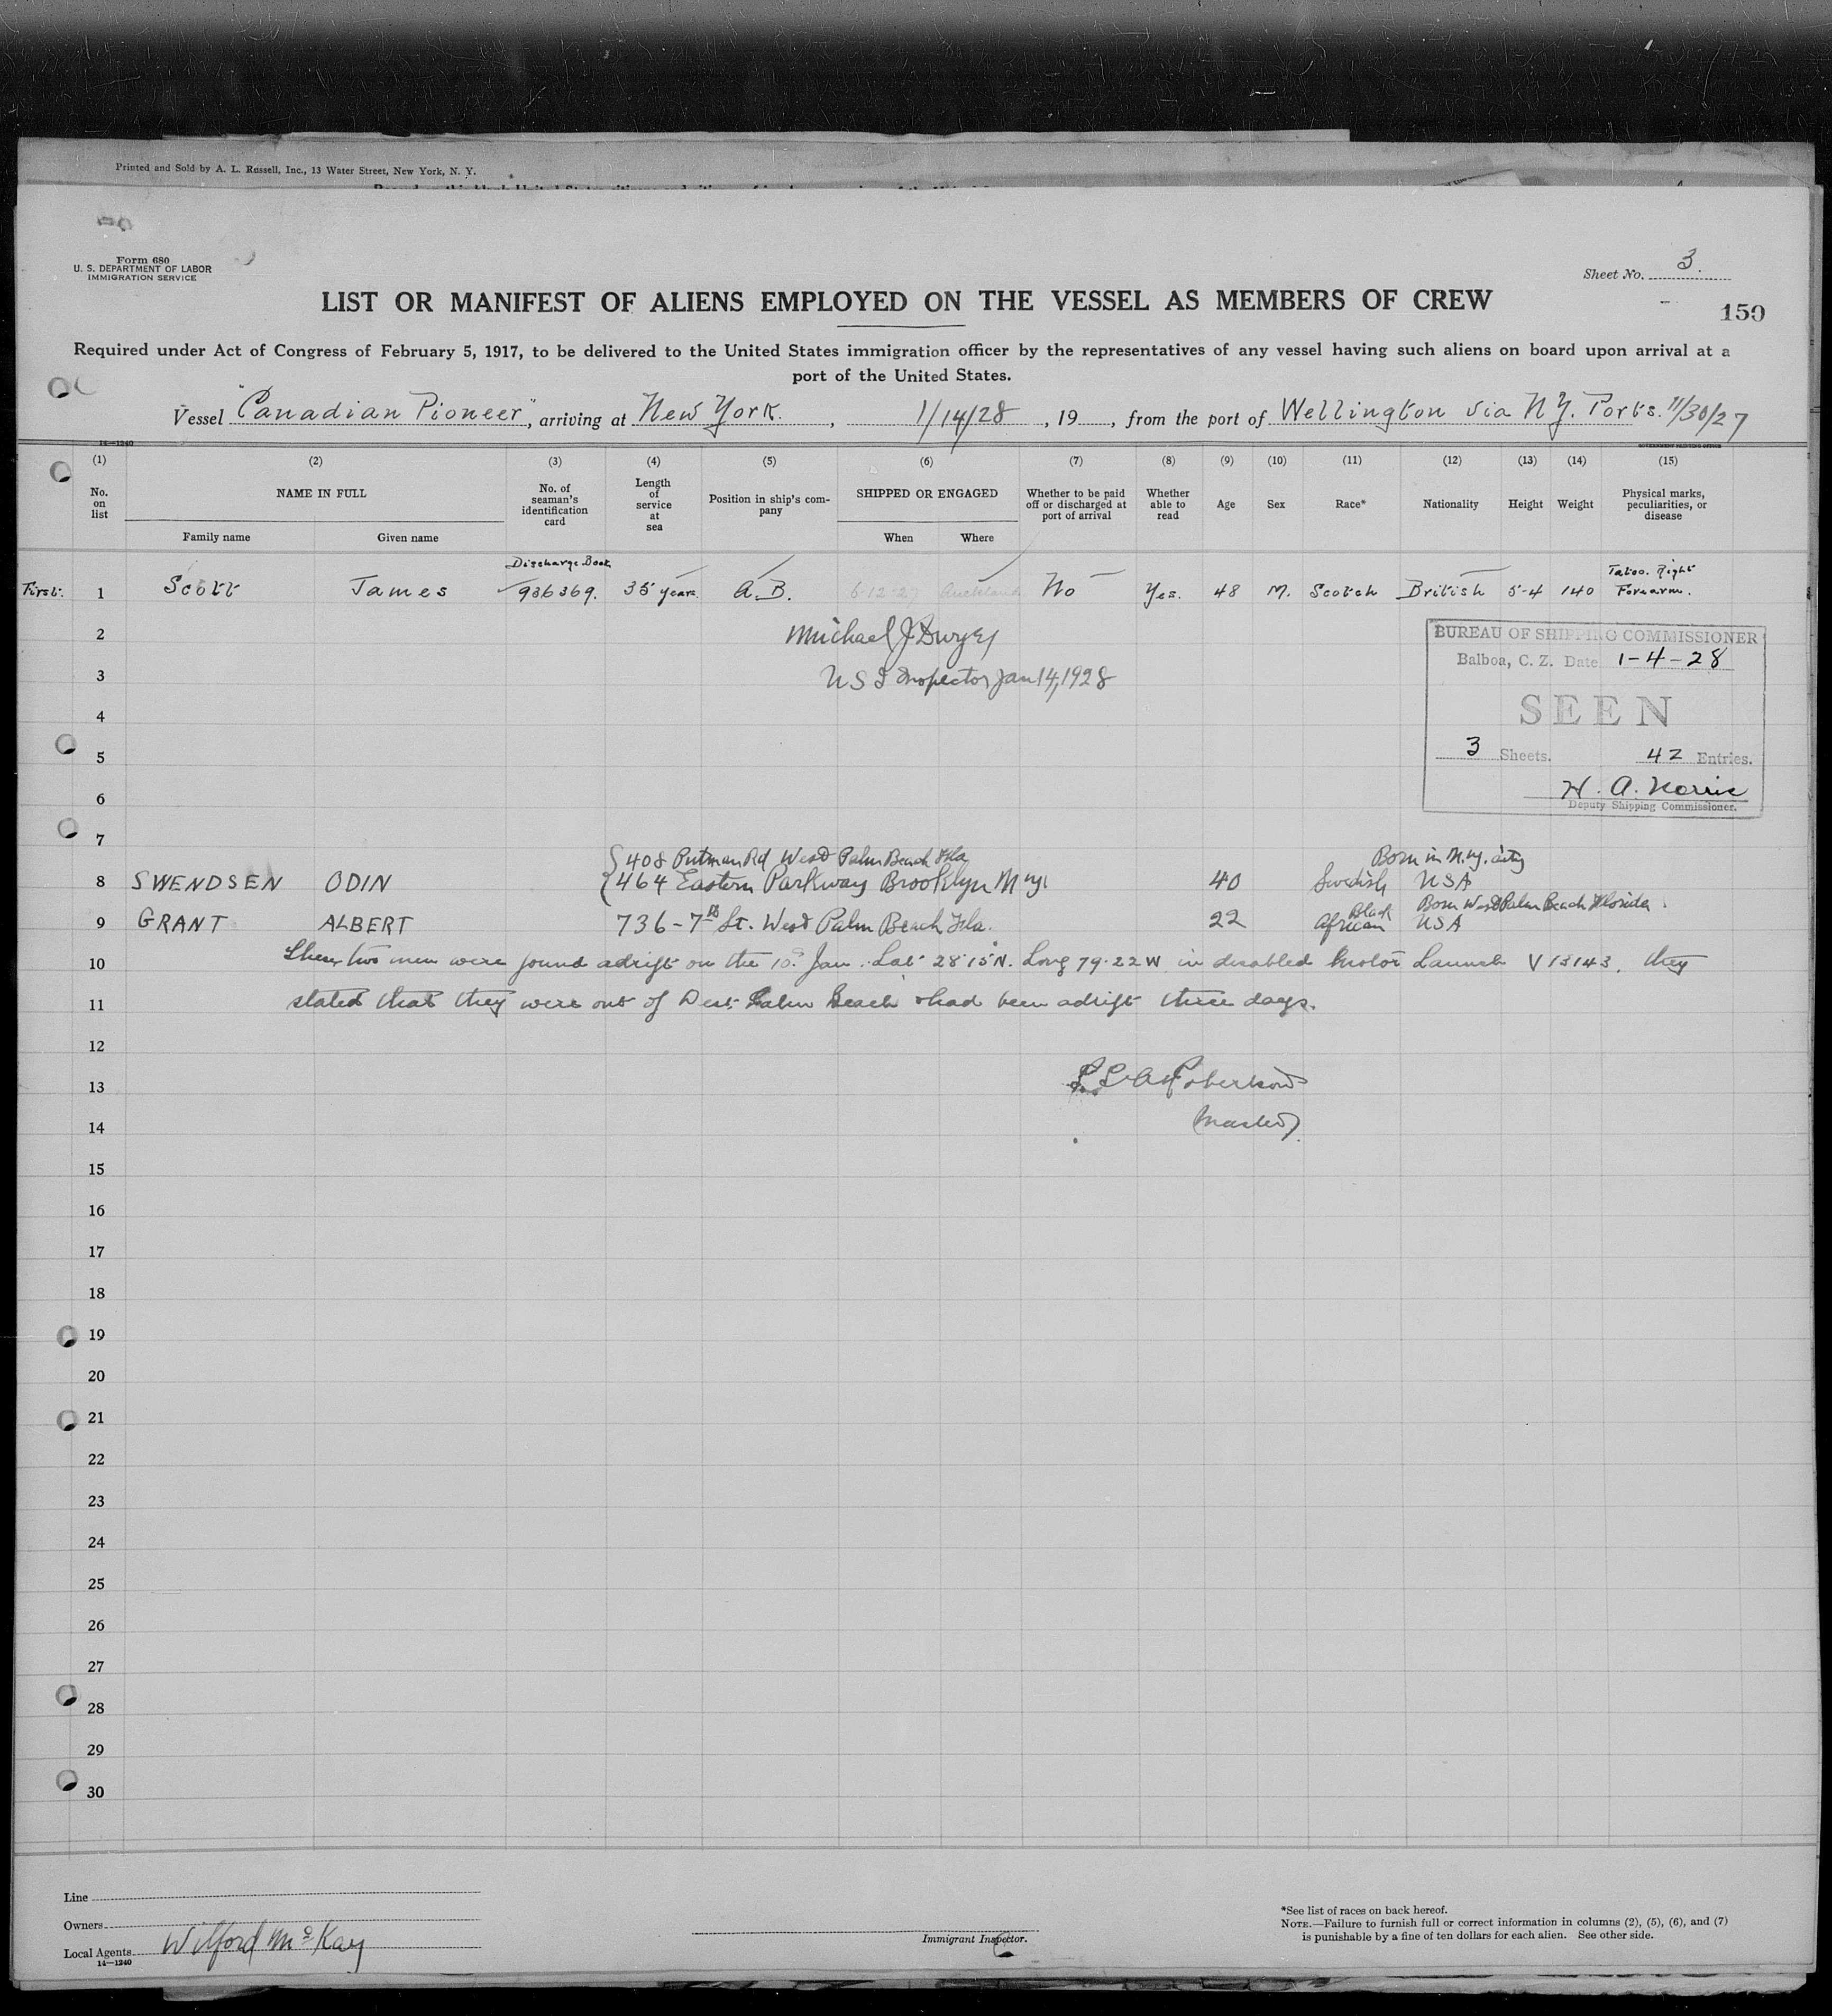 Printed and Sold by A. L. Russell, Inc., 13 Water Street, New York, N. Y.
Form 680
U. S. DEPARTMENT OF LABOR
IMMIGRATION SERVICE
Sheet No. 3.
LIST OR MANIFEST OF ALIENS EMPLOYED ON THE VESSEL AS MEMBERS OF CREW
150
Required under Act of Congress of February 5, 1917, to be delivered to the United States immigration officer by the representatives of any vessel having such aliens on board upon arrival at a
port of the United States.
Vessel "Canadian Pioneer", arriving at New York. , 1/14/28 , 19 , from the port of Wellington via N.Z. Ports. 11/30/27
14—1240
GOVERNMENT PRINTING OFFICE
(1) (2) (3) (4) (5) (6) (7) (8) (9) (10) (11) (12) (13) (14) (15)
No. on list NAME IN FULL No. of seaman's identification card Length of service at sea Position in ship's company SHIPPED OR ENGAGED Whether to be paid off or discharged at port of arrival Whether able to read Age Sex Race* Nationality Height Weight Physical marks, peculiarities, or disease
Family name Given name When Where
Discharge Book Tatoo. Right
First. 1 Scott James 936369. 35 years. A.B. 6-12-27 Auckland No Yes. 48 M. Scotch British 5-4 140 Forearm.
2 Michael J Dwyer
3 U S I Inspector Jan 14, 1928
BUREAU OF SHIPPING COMMISSIONER
Balboa, C. Z. Date 1-4-28
SEEN
3 Sheets. 42 Entries.
H. A. Norris
Deputy Shipping Commissioner.
4
5
6
7
408 Putman Rd West Palm Beach Fla Born in N.Y. City
8 SWENDSEN ODIN 464 Eastern Parkway Brooklyn N.Y. 40 Swedish USA
Black Born West Palm Beach Florida.
9 GRANT ALBERT 736-7th St. West Palm Beach Fla. 22 African USA
10 These two men were found adrift on the 10th Jan. Lat 28°15'N. Long 79.22W in disabled Motor Launch V13143. they
11 stated that they were out of West Palm Beach & had been adrift three days.
12
13 Robertson
14 Master
15
16
17
18
19
20
21
22
23
24
25
26
27
28
29
30
Line
Owners
Local Agents Wilford McKay
14—1240
Immigrant Inspector.
*See list of races on back hereof.
NOTE.—Failure to furnish full or correct information in columns (2), (5), (6), and (7)
is punishable by a fine of ten dollars for each alien. See other side.